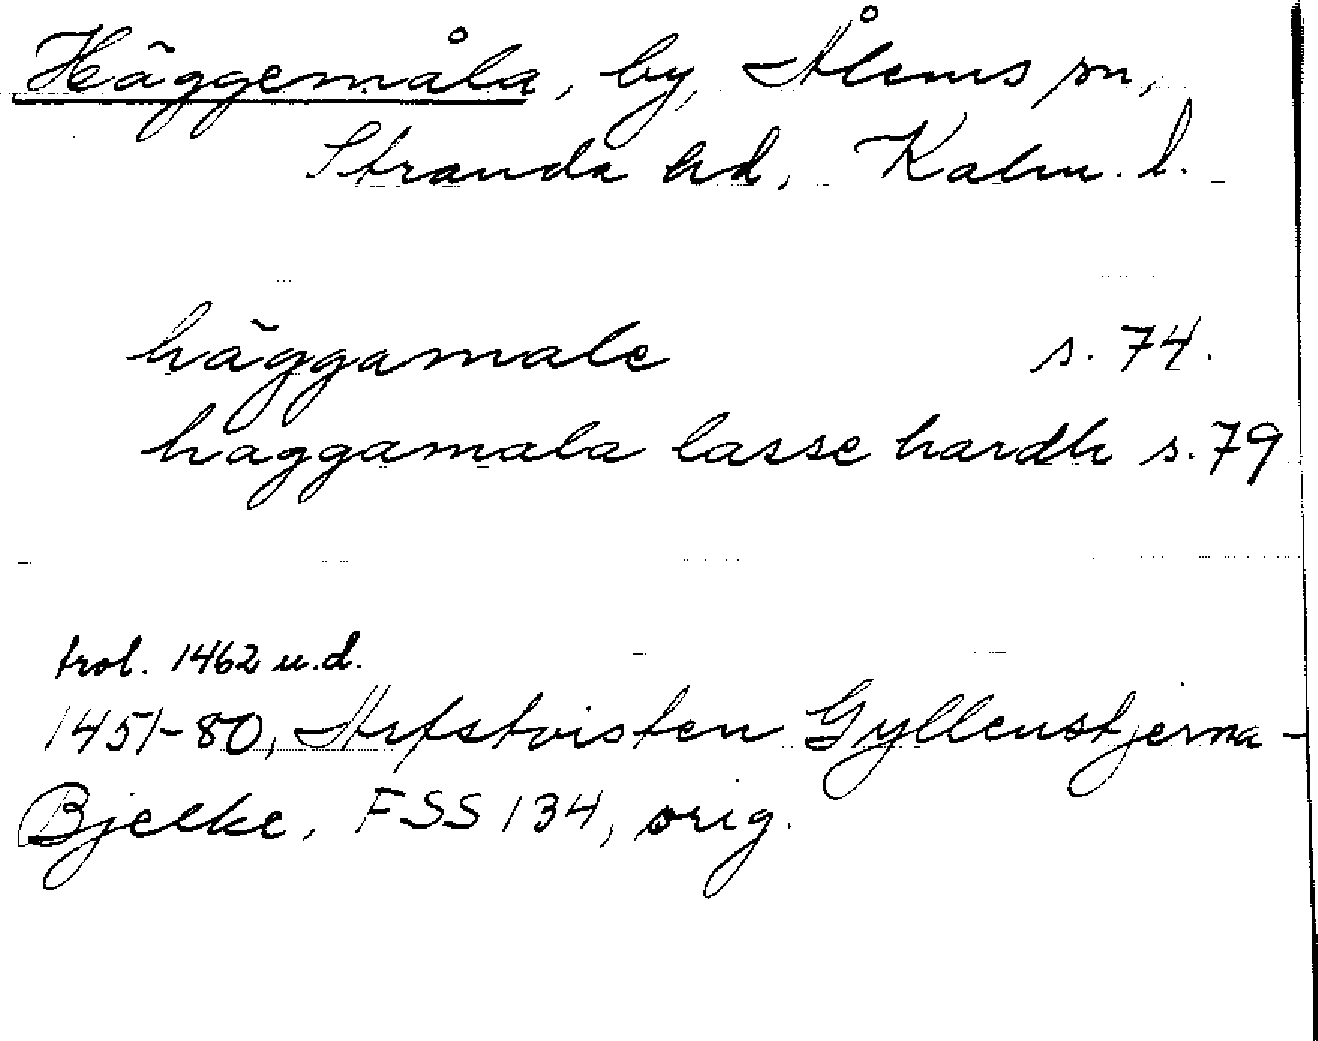 Häggemåla, by, Ålems sn,
Stranda hd, Kalm. l.
häggamale s. 74.
haggamala lasse hardh s. 79
trol. 1462 u.d.
1451-80, Arfstvisten Gyllenstjerna-
Bjelke, FSS 134, orig.